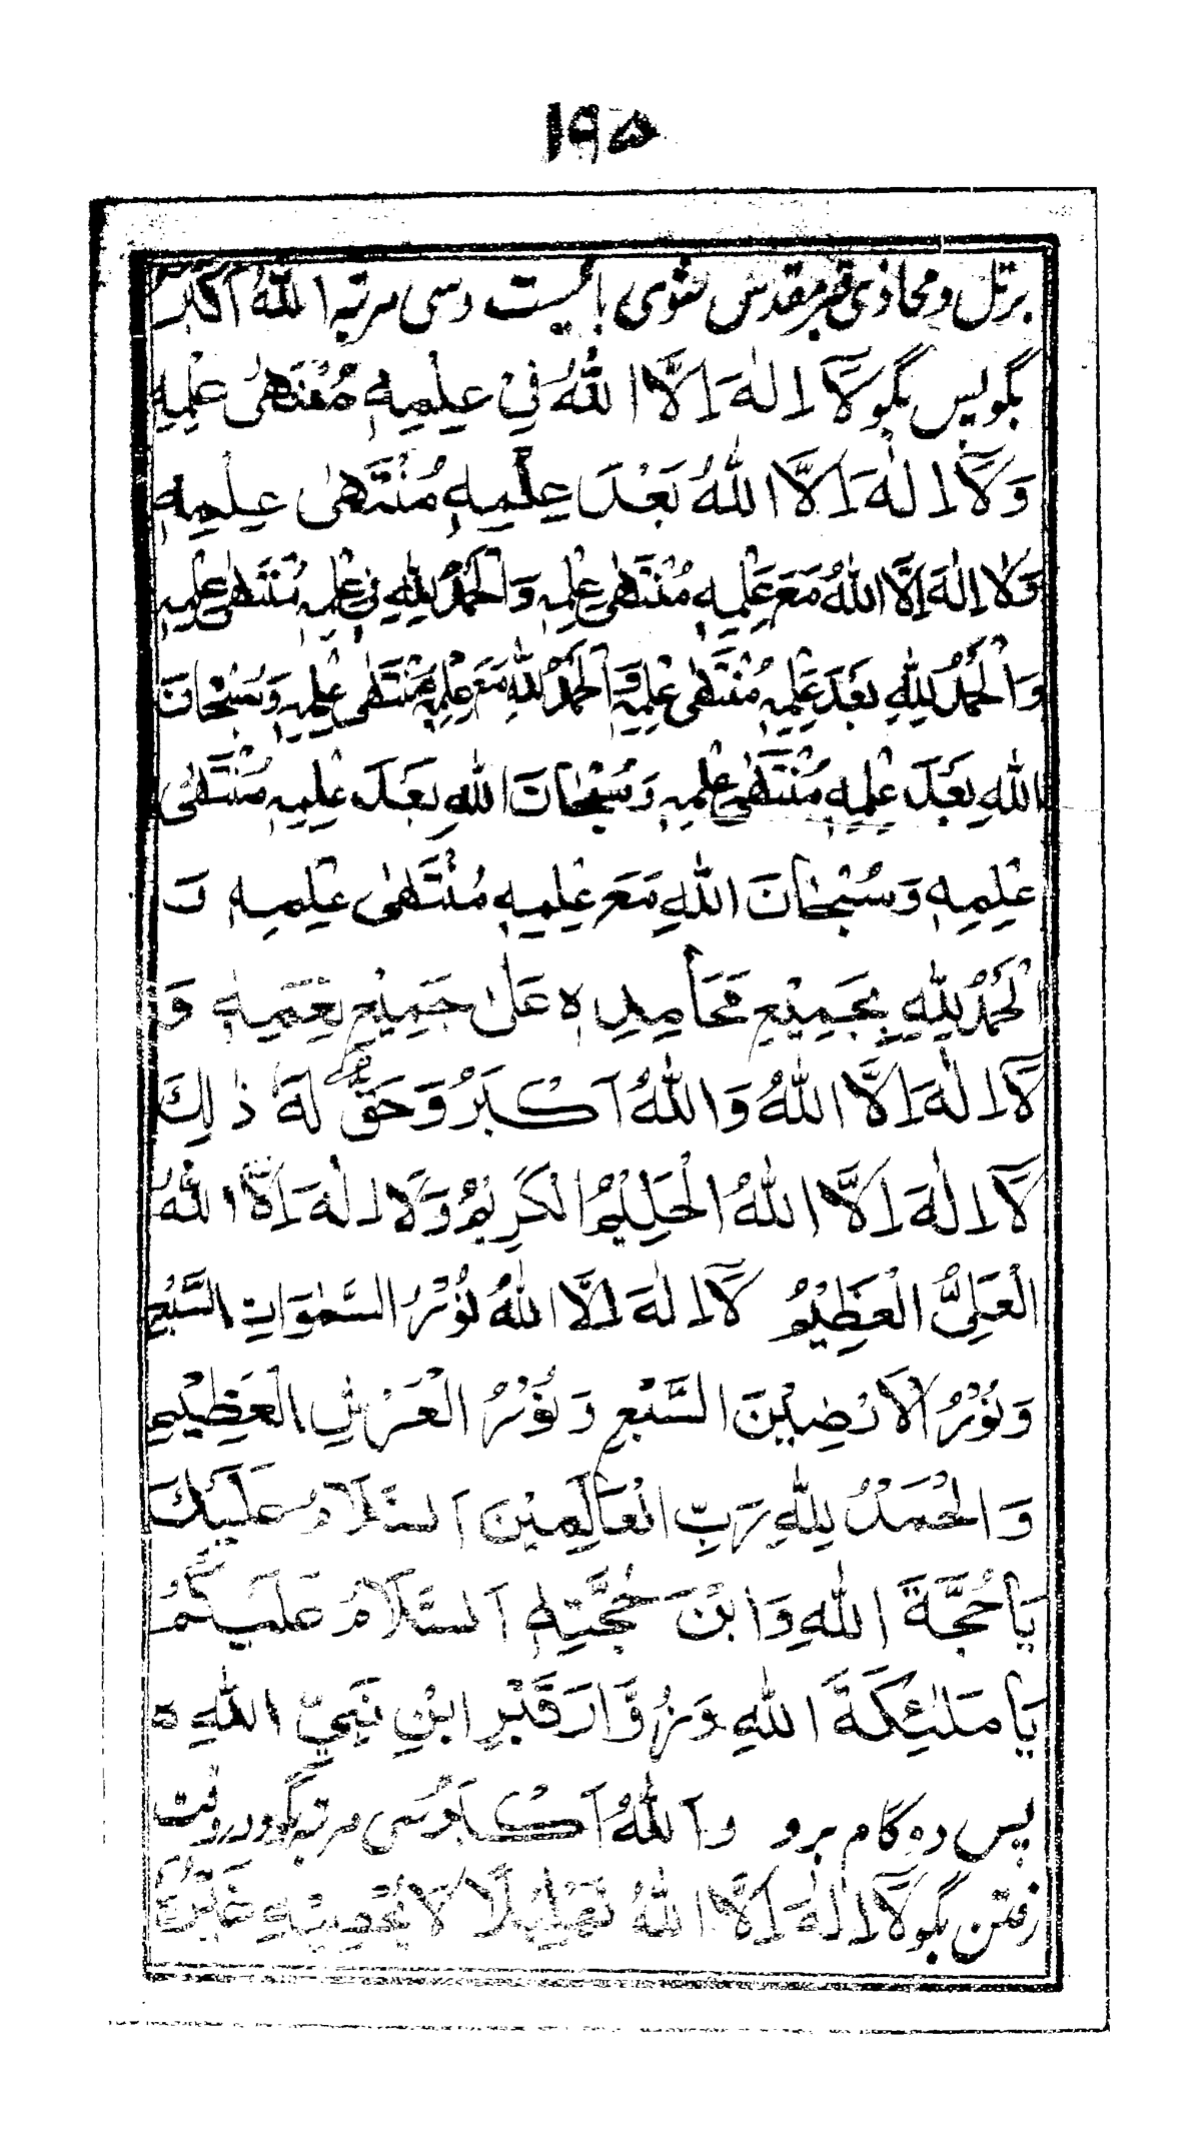 ۱۹۵
برتل و محاذی قبر مقدس شوی بایست و سی مرتبه اَللّٰهُ اَکْبَرُ
بگو پس بگو لَآ اِلٰهَ اِلَّا اللّٰهُ فِیْ عِلْمِهٖ مُنْتَهٰی عِلْمِهٖ
وَلَآ اِلٰهَ اِلَّا اللّٰهُ بَعْدَ عِلْمِهٖ مُنْتَهٰی عِلْمِهٖ
وَلَا اِلٰهَ اِلَّا اللّٰهُ مَعَ عِلْمِهٖ مُنْتَهٰی عِلْمِهٖ وَالْحَمْدُ لِلّٰهِ فِیْ عِلْمِهٖ مُنْتَهٰی عِلْمِهٖ
وَالْحَمْدُ لِلّٰهِ بَعْدَ عِلْمِهٖ مُنْتَهٰی عِلْمِهٖ وَالْحَمْدُ لِلّٰهِ مَعَ عِلْمِهٖ مُنْتَهٰی عِلْمِهٖ وَسُبْحَانَ
اللّٰهِ بَعْدَ عِلْمِهٖ مُنْتَهٰی عِلْمِهٖ وَسُبْحَانَ اللّٰهِ بَعْدَ عِلْمِهٖ مُنْتَهٰی
عِلْمِهٖ وَسُبْحَانَ اللّٰهِ مَعَ عِلْمِهٖ مُنْتَهٰی عِلْمِهٖ وَ
الْحَمْدُ لِلّٰهِ بِجَمِیْعِ مَحَامِدِهٖ عَلٰی جَمِیْعِ نِعَمِهٖ وَ
لَآ اِلٰهَ اِلَّا اللّٰهُ وَاللّٰهُ اَکْبَرُ وَحَقٌّ لَهٗ ذٰلِکَ
لَآ اِلٰهَ اِلَّا اللّٰهُ الْحَلِیْمُ الْکَرِیْمُ وَلَا اِلٰهَ اِلَّا اللّٰهُ
الْعَلِیُّ الْعَظِیْمُ لَآ اِلٰهَ اِلَّا اللّٰهُ نُوْرُ السَّمٰوَاتِ السَّبْعِ
وَنُوْرُ الْاَرْضِیْنَ السَّبْعِ وَنُوْرُ الْعَرْشِ الْعَظِیْمِ
وَالْحَمْدُ لِلّٰهِ رَبِّ الْعَالَمِیْنَ اَلسَّلَامُ عَلَیْکَ
یَا حُجَّةَ اللّٰهِ وَابْنَ حُجَّتِهٖ اَلسَّلَامُ عَلَیْکُمْ
یَا مَلٰئِکَةَ اللّٰهِ وَزُوَّارَ قَبْرِ ابْنِ نَبِیِّ اللّٰهِ ه
پس ده گام برو و اَللّٰهُ اَکْبَرُ سی مرتبه بگو و در وقت
رفتن بگو لَآ اِلٰهَ اِلَّا اللّٰهُ تَهْلِیْلًا لَا یُحْصِیْهِ غَیْرُهٗ